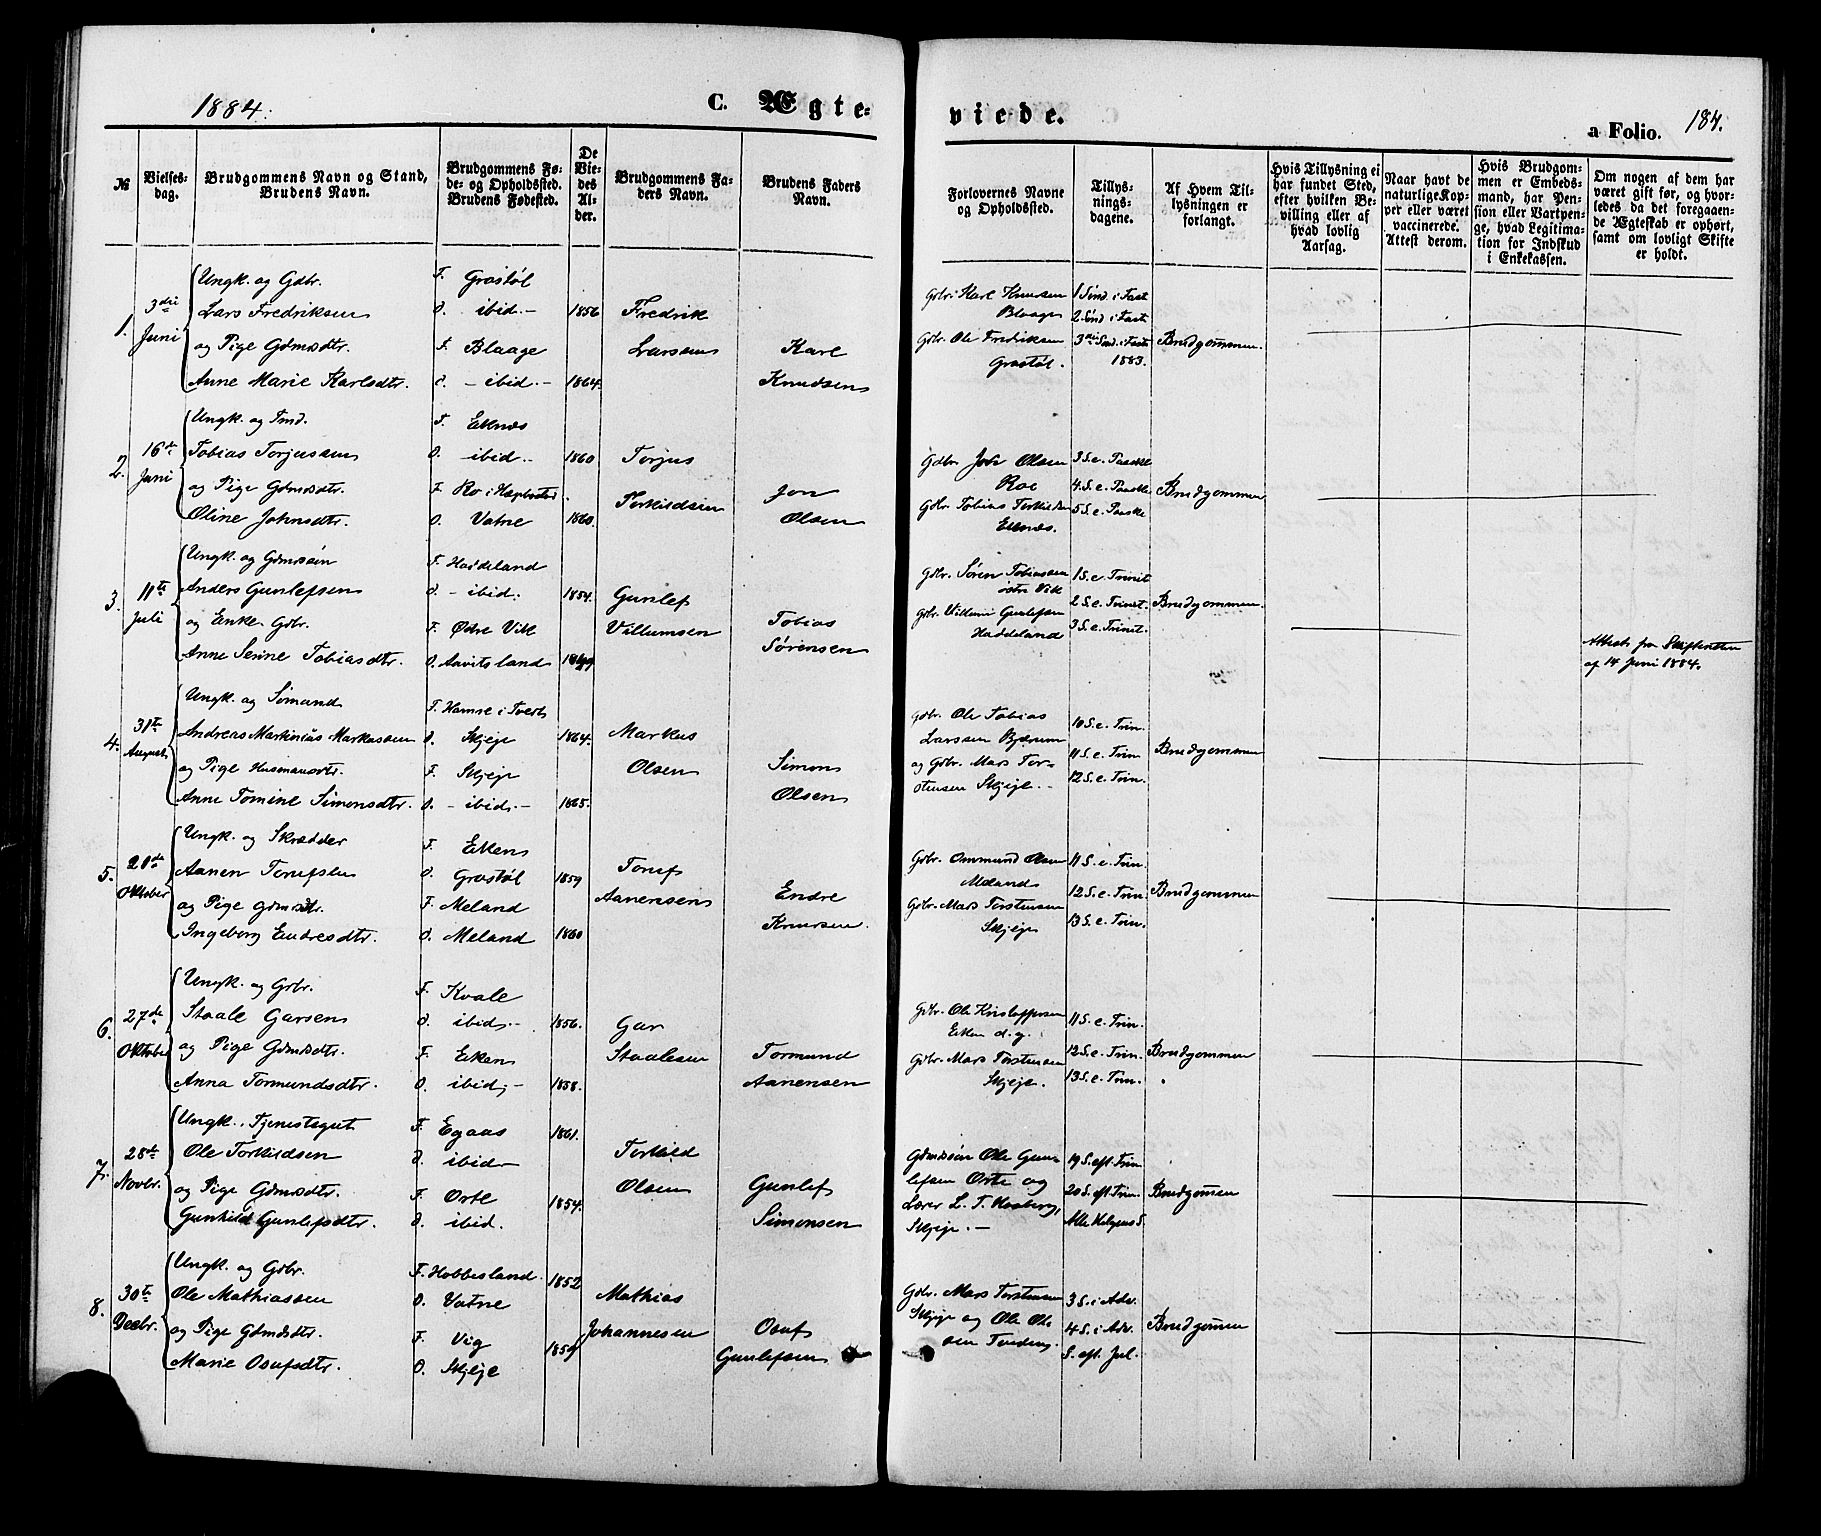 1884.
C. Ægte-
viede.
a Folio. 184.
№
Vielses-
dag.
Brudgommens Navn og Stand,
Brudens Navn.
Brudgommens Fø-
de- og Opholdssted.
Brudens Fødested.
De
Vie-
des
Al-
der.
Brudgommens Fa-
ders Navn.
Brudens Faders
Navn.
Forlovernes Navne
og Opholdssted.
Tillys-
nings-
dagene.
Af Hvem Til-
lysningen er
forlangt.
Hvis Tillysning ei
har fundet Sted,
efter hvilken Be-
villing eller af
hvad lovlig
Aarsag.
Naar havt de
naturlige Kop-
per eller været
vaccinerede.
Attest derom.
Hvis Brudgom-
men er Embeds-
mand, har Pen-
sion eller Vartpen-
ge, hvad Legitima-
tion for Indskud
i Enkekassen.
Om nogen af dem har
været gift før, og hvor-
ledes da det foregaaen-
de Ægteskab er ophørt,
samt om lovligt Skifte
er holdt.
1. 3die Juni
Ungk. og Gdbr. F. Grostøl
Lars Fredriksen O. ibid.- 1856 Fredrik
og Pige Gdmdsdtr. F. Blaage Larsen Karl
Anne Marie Karlsdtr. O. - ibid.- 1864. Knudsen
Gdbr. Karl Knudsen 1 Sønd. i Fast
Blaage 2. Sønd i Faste
Gdbr. Ole Fredriksen 3die Sønd. i Faste Brudgommen.
Grostøl. 1883.
2. 16de Juni
Ungk. og Fmd. F. Eknes
Tobias Torjussen O. ibid.- 1860 Torjus
og Pige Gdmdsdtr. F. Ro i Hægebostad. Torkildsen Jon
Oline Johnsdtr. O. Vatne 1860. Olsen
Gdbr. John Olsen 3 S. e. Paaske
Roe 4. S. e. Paaske Brudgommen
Gdbr. Tobias Torkildsen 5 S. e. Paaske
Eknes.
3. 11te Juli
Ungk. og Gdmdssøn F. Haddeland
Anders Gunlefsen O. - ibid. 1854. Gunlef
og Enke Gdbr. F. Østre Vik Villumsen Tobias
Anne Serine Tobiasdtr. O. Aavitsland Sørensen
Gdbr. Sören Tobiassen 1 S. e. Trinit
østre Vik 2 S. e. Trinit. Brudgommen.
Gdbr. Villum Gunlefsen 3 S. e. Trinit.
Haddeland
Attest fra Skifteretten
af 14 Juni 1884.
4. 31te August
Ungk. og Sømand F. Hamre i Tveit
Andreas Martinius Markussen O. Skjeje 1864. Markus
og Pige Husmandsdtr. F. Skjeje Olsen Simon
Anne Tomine Simonsdtr. O. - ibid.- 1865. Olsen
Gdbr. Ole Tobias 10 S. e. Trin.
Larssen Bjærum 11 S. e. Trin Brudgommen
og Gdbr. Mars Tor- 12 S. e. Trin.
stensen Skjeje.
5. 20de Oktober
Ungk. og Skrædder F. Eiken
Aanen Torufsen O. Grostøl 1859 Toruf
og Pige Gdmdsdtr. F. Meland Aanensen Endre
Ingeborg Endresdtr. O. Meland 1860 Knudsen.
Gdbr. Ommund Olsen 11 S. e. Trin.
Meland 12 S. e. Trin. Brudgommen
Gdbr. Mars Torstensen 13 S. e. Trin.
Skjeje
6. 27de Oktober
Ungk. og Gdbr. F. Kvale
Staale Garsen O. ibid.- 1856. Gar
og Pige Gdmdsdtr. F. Eiken Staalesen Tormund
Anna Tormundsdtr. O. ibid.- 1858. Aanensen
Gdbr. Ole Kristoffersen 11 S. e. Trin.
Eiken d. y. 12 S. e. Trin. Brudgommen
Gdbr. Mars Torstensen 13 S. e. Trin.
Skjeje.
7. 28de Novbr.
Ungk., Tjenestegut F. Egaas 1861.
Ole Torkildsen O. ibid- Torkild
og Pige Gdmdsdtr. F. Orte 1854. Olsen Gunlef
Gunhild Gunlefsdtr. O. ibid. Simonsen
Gdmdssön Ole Gun- 19 S. eft. Trin
lefsen Orte og 20 S. eft. Trin. Brudgommen
Lærer L. T. Alle Helgens S.
Skjeje. -
8. 30te Decbr.
Ungk. og Gdbr. F. Hobbesland. 1852
Ole Mathiassen O. Vatne Mathias
og Pige Gdmdsdtr. F. Vig 1859 Johannesen Osuf
Marie Osufsdtr. O. Skjeje Gunlefsen
Gdbr. Mars Torstensen 3 S. i Adv.
Skjeje og Ole Ol- 4 S. i Adv. Brudgommen
sen S. eft. Jul.